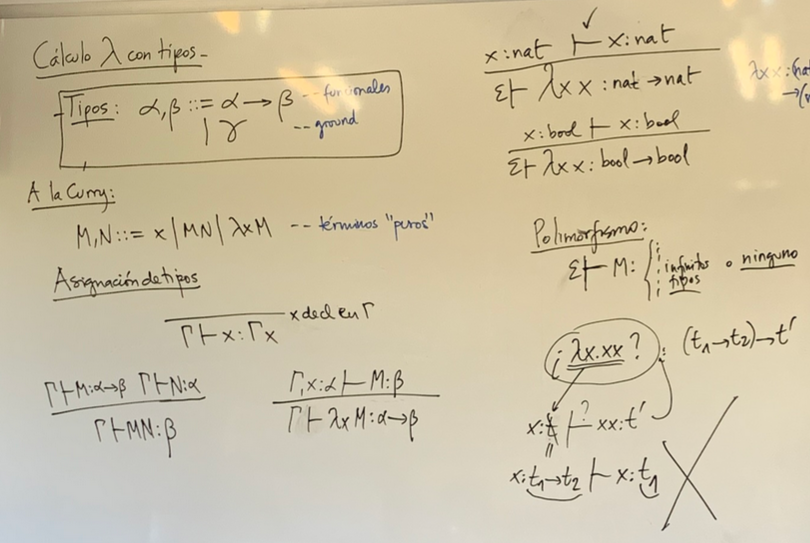 Cálculo λ con tipos.-
Tipos: α,β ::= α → β -- funcionales
| γ -- ground
A la Curry:
M,N ::= x | MN | λxM -- términos "puros"
Asignación de tipos
x decl en Γ
Γ ⊢ x : Γx
Γ ⊢ M:α→β Γ ⊢ N:α
Γ ⊢ MN:β
Γ, x:α ⊢ M:β
Γ ⊢ λxM:α→β
✓
x:nat ⊢ x:nat
Σ ⊢ λx x : nat → nat
λx x :
x:bool ⊢ x:bool
Σ ⊢ λx x : bool → bool
Polimorfismo:
Σ ⊢ M: { infinitos o ninguno
tipos
¿ λx.xx ? : (t₁→t₂)→t'
x:t ⊢? xx:t'
||
x:t₁→t₂ ⊢ x:t₁